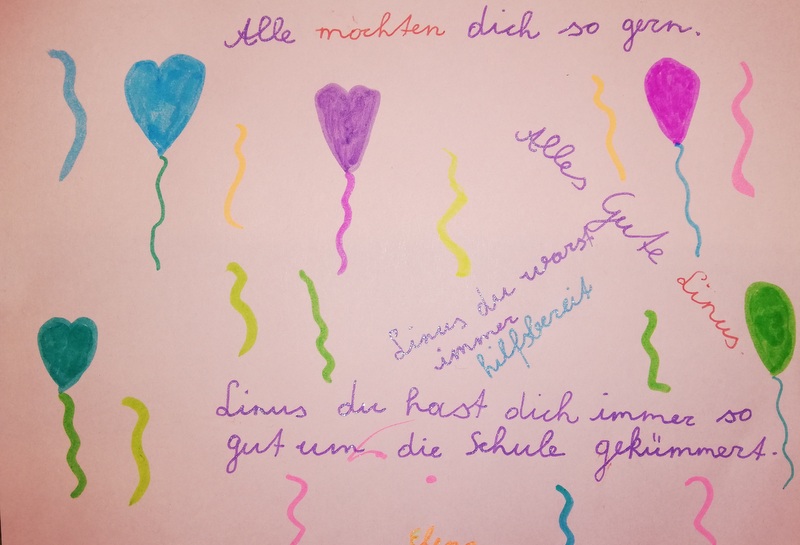 Alle möchten dich so gern.
Alles Gute Linus.
Linus du warst
immer
hilfsbereit
Linus du hast dich immer so
gut um die Schule gekümmert.